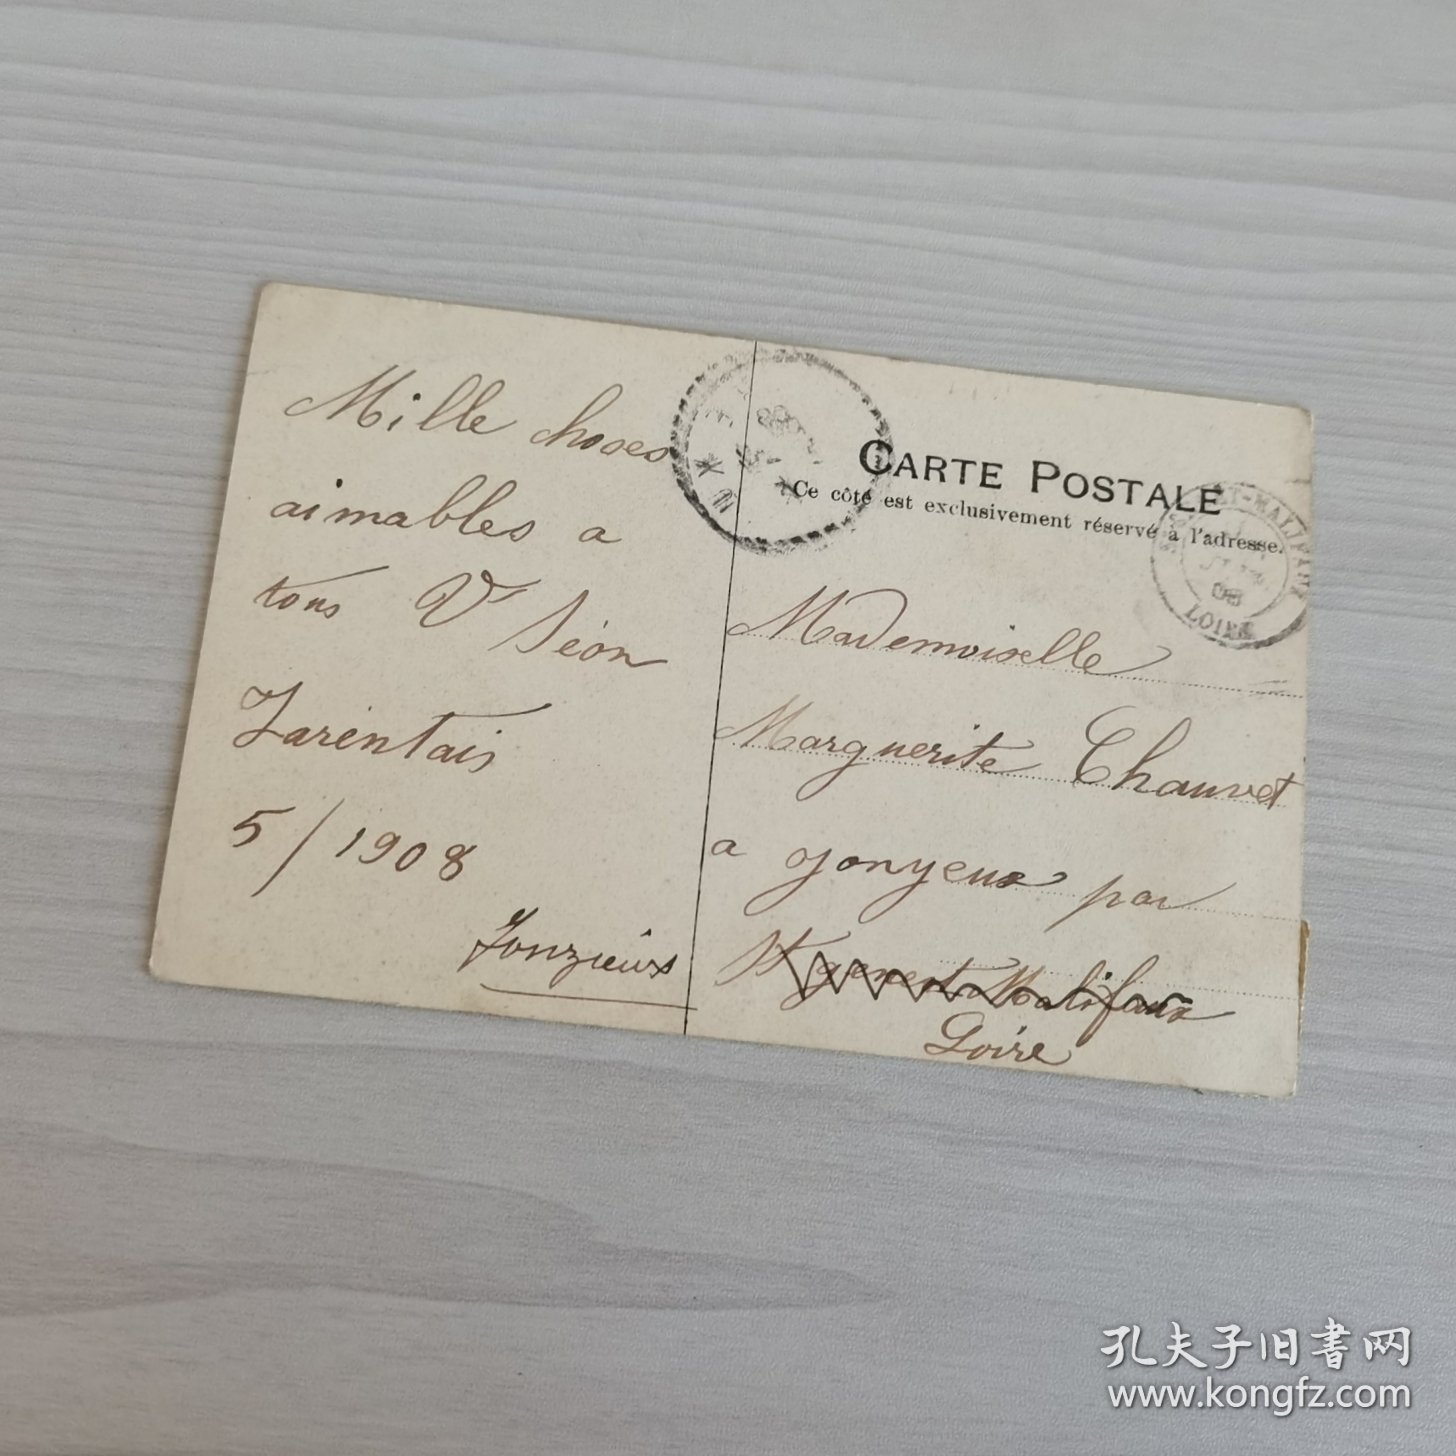 Mille choses
aimables a
tous V Séon
Tarentais
5/1908
Jonzieux
CARTE POSTALE
Ce côté est exclusivement réservé à l'adresse.
Mademoiselle
Marguerite Chauvet
a Jonyeux par
St genest Malifaux
Loire
LOIRE
孔夫子旧书网
www.kongfz.com